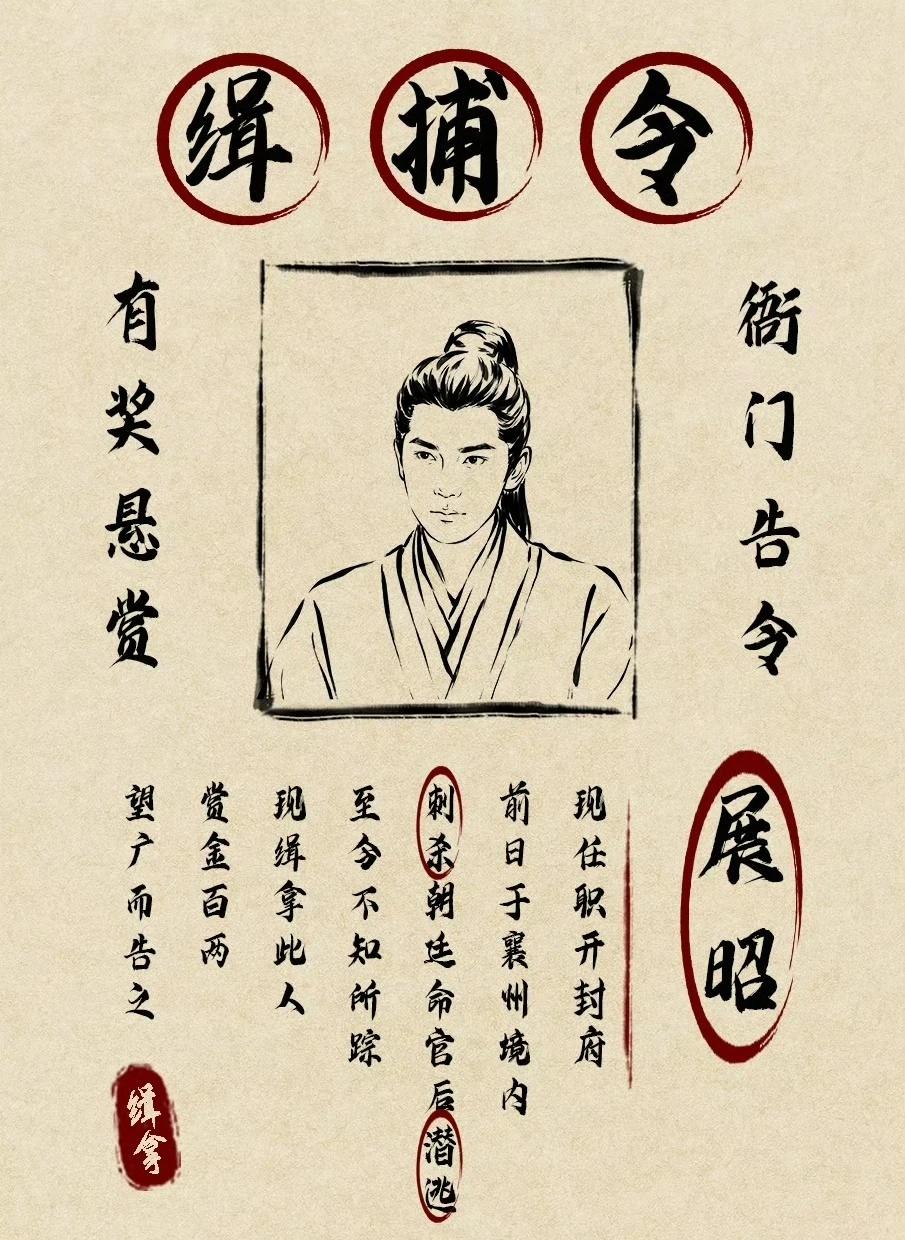 缉捕令
衙门告令
有奖悬赏
展昭
现任职开封府
前日于襄州境内
刺杀朝廷命官后潜逃
至今不知所踪
现缉拿此人
赏金百两
望广而告之
缉拿